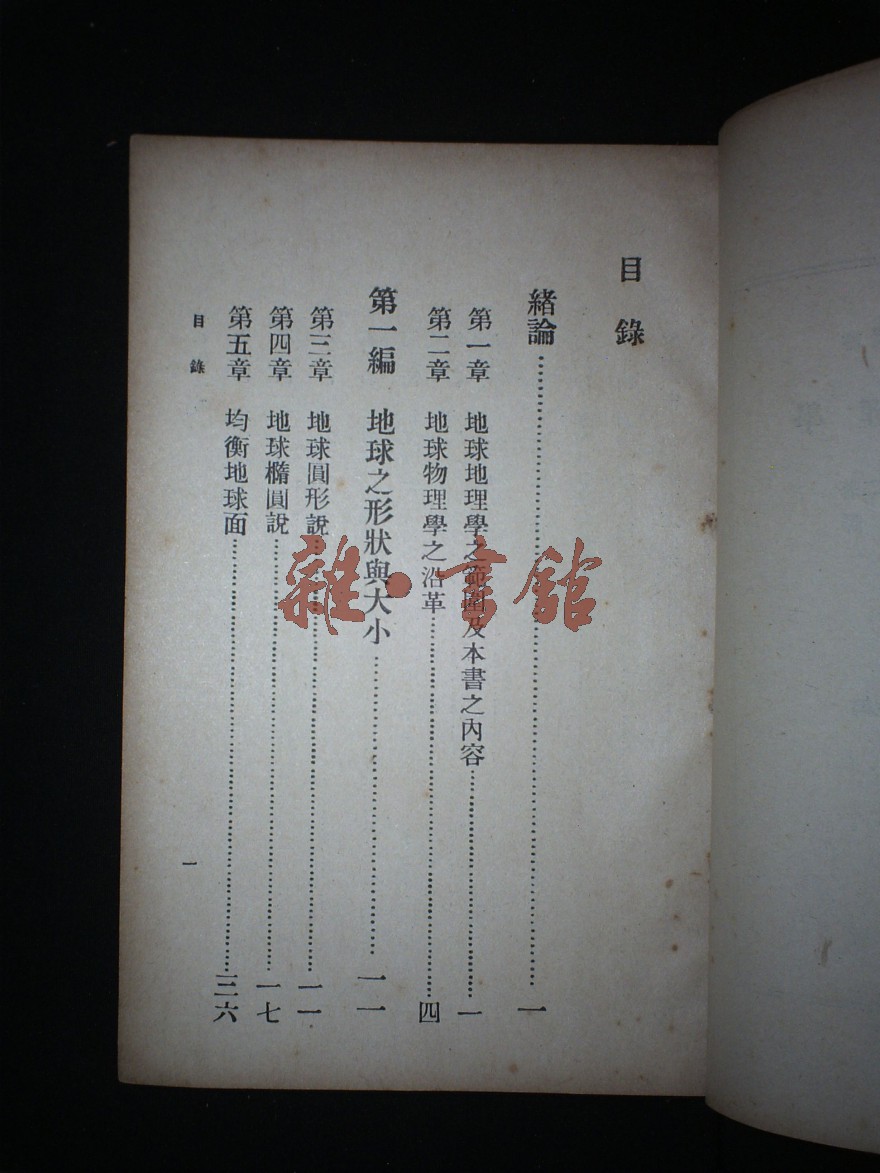 目錄
緒論……一
第一章 地球地理學之範圍及本書之內容……一
第二章 地球物理學之沿革……四
第一編 地球之形狀與大小……一一
第三章 地球圓形說……一一
第四章 地球橢圓說……一七
第五章 均衡地球面……三六
目錄
一
雜·書館